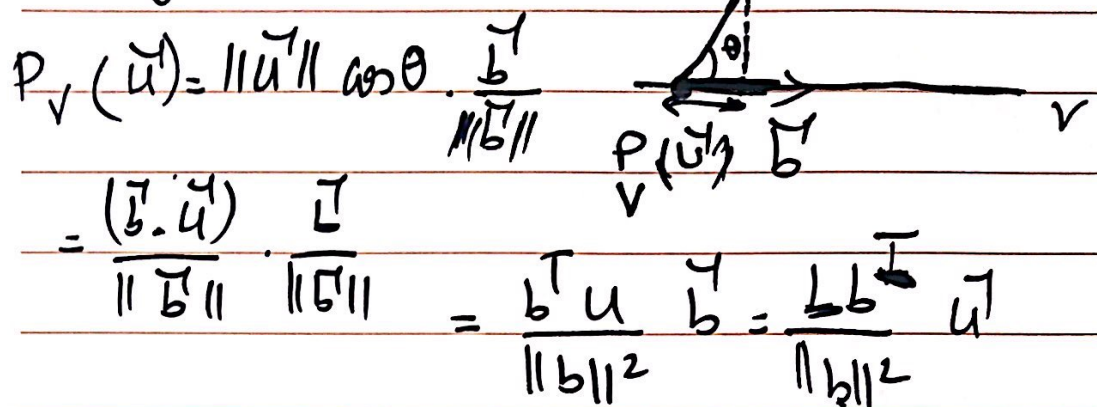 P_V (u⃗) = ||u⃗|| cos θ . b⃗ / ||b⃗||
θ
V
P_V (u⃗) b⃗
= (b⃗ . u⃗) / ||b⃗|| . b⃗ / ||b⃗||
= b^T u / ||b||² b⃗ = b b^T / ||b||² u⃗